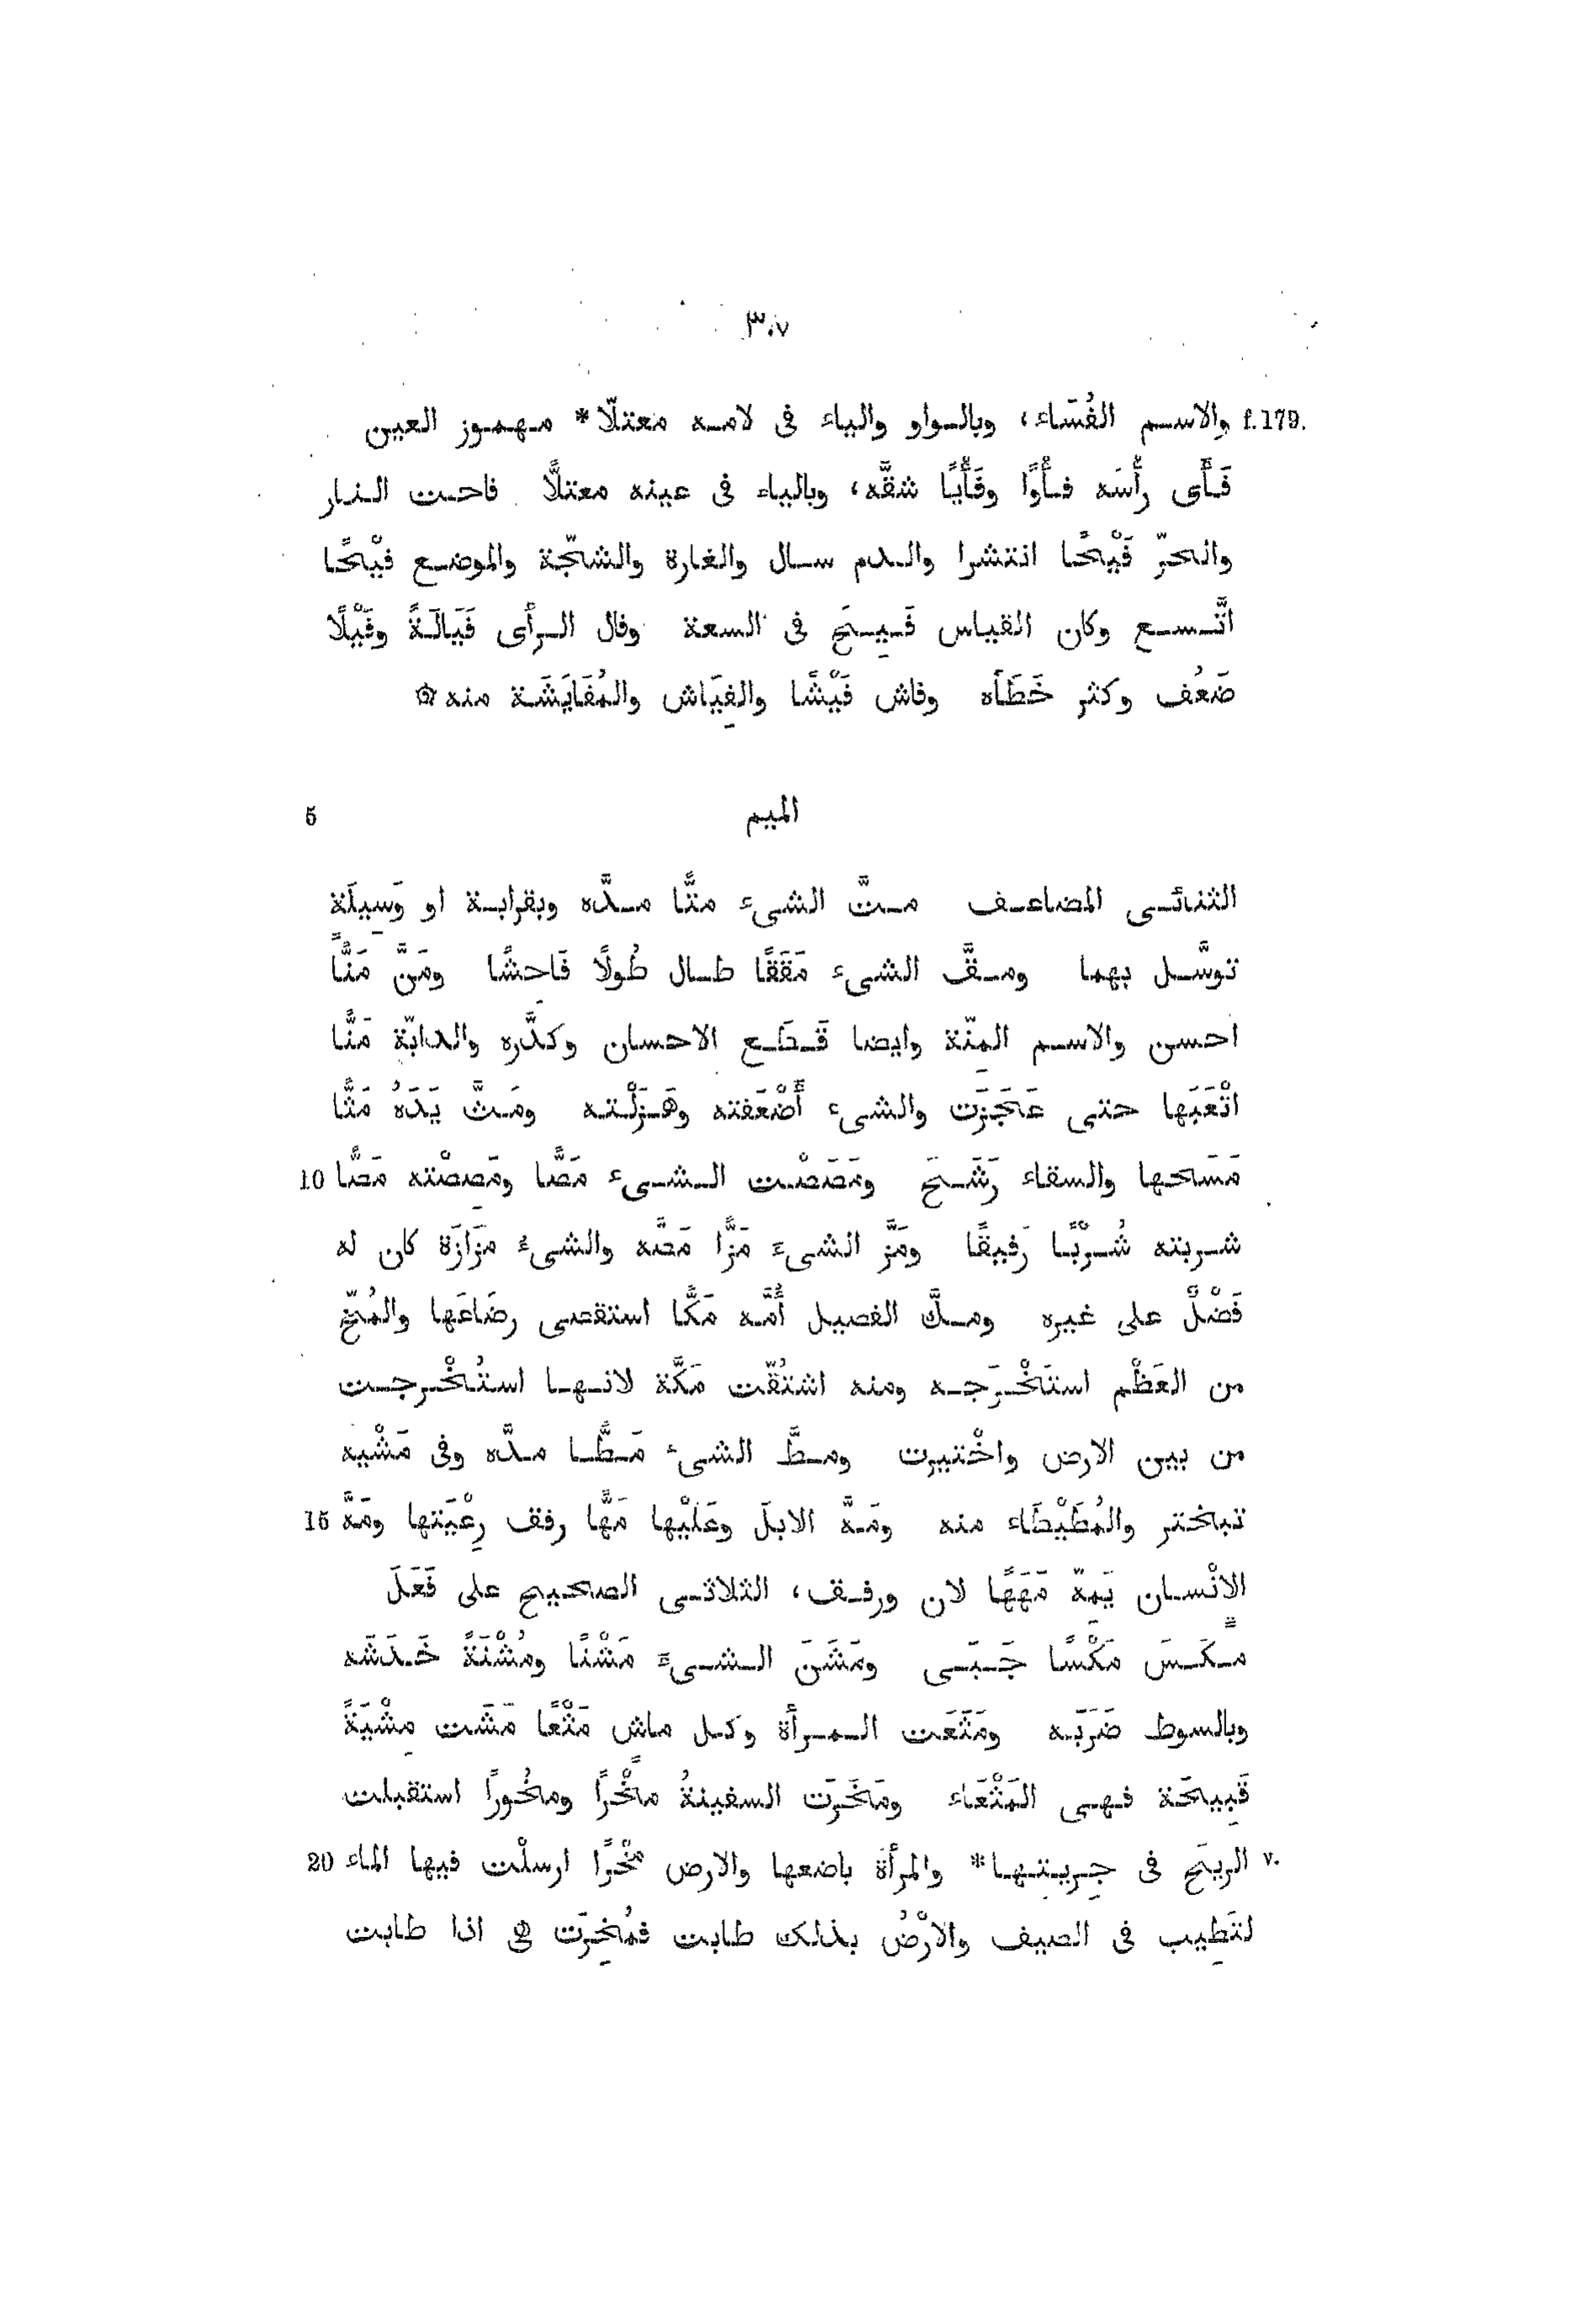 ٣٠٧
f.179. والاسم الفُسَاء، وبالواو والياء فى لامه معتلّا * مهموز العين
فَأَى رأْسَه فأْوًا وفَأْيًا شقَّه، وبالياء فى عينه معتلًّا فاحت النار
والحرّ فَيْحًا انتشرا والدم سال والغارة والشجّة والموضع فيْحًا
اتَّسع وكان القياس فَيِحَ فى السعة وفال الرأى فَيَالَةً وفَيْلًا
ضَعُف وكثر خَطَأه وفاش فَيْشًا والفِيَاش والمُفَايَشَة منه ۞
الميم 5
الثنائى المضاعف متَّ الشىء متًّا مدَّه وبقرابة او وَسِيلَة
توسَّل بهما ومقَّ الشىء مَقَقًا طال طُولًا فَاحشًا ومَنَّ مَنًّا
احسن والاسم المِنّة وايضا قَطَع الاحسان وكدَّره والدابّة مَنًّا
اتْعَبَها حتى عَجَزَت والشىء أَضْعَفته وهَزَلْته ومَثَّ يَدَهُ مَثًّا
مَسَحها والسقاء رَشَحَ ومَصَصْت الشىء مَصًّا ومَصِصْته مَصًّا 10
شربته شُرْبًا رَفيقًا ومَزَّ الشىءَ مَزًّا مَصَّه والشىءُ مَزَازَة كان له
فَضْلٌ على غيره ومكَّ الفصيل أُمَّه مَكًّا استقصى رضَاعَها والمُخّ
من العَظْم استَخْرَجه ومنه اشتُقّت مَكَّة لانها استُخْرجت
من بين الارض واخْتيرت ومطَّ الشىءَ مَطًّا مدَّه وفى مَشْيه
تبختر والمُطَيْطَاء منه ومَهَّ الابلَ وعَلَيْها مَهًّا رفق رِعْيَتها ومَهَّ 15
الانْسان يَمِهّ مَهَهًا لان ورفق، الثلاثى الصحيح على فَعَلَ
مكَسَ مَكْسًا جَبَى ومَشَنَ الشىءَ مَشْنًا ومُشْنَةً خَدَشَه
وبالسوط ضَرَبَه ومَثَعَت المرأة وكل ماش مَثْعًا مَشَت مِشْيَةً
قَبِيحَة فهى المَثْعَاء ومَخَرَت السفينةُ مخْرًا ومخُورًا استقبلت
v. الريحَ فى جِريتها * والمرأة باضعها والارض مَخْرًا ارسلْت فيها الماء 20
لتَطِيب فى الصيف والارْضُ بذلك طابت فمُخِرَت هى اذا طابت